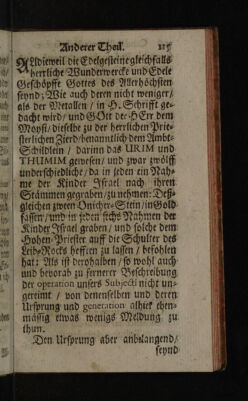 Anderer Theil. 215
ALldieweil die Edelgesteine gleichfalls
herrliche Wunderwercke und Edele
Geschöpffe Gottes des Allerhöchsten
seynd; Wie auch deren nicht weniger /
als der Metallen / in H. Schrifft ge-
dacht wird / und GOtt der HErr dem
Moysi / dieselbe zu der herrlichen Prie-
sterlichen Zierd / benamtlich dem Ambt-
Schildlein / darinn das URIM und
THUMIM gewesen / und zwar zwölff
underschiedliche / da in jeden ein Nah-
me der Kinder Israel nach ihren
Stämmen gegraben / zu nehmen: Deß-
gleichen zween Onicher-Stein / in Gold
fassen / und in jeden sechs Nahmen der
Kinder Israel graben / und solche dem
Hohen-Priester auff die Schulter des
Leib-Rocks hefften zu lassen / befohlen
hat: Als ist derohalben / so wohl auch
und bevorab zu fernerer Beschreibung
der operation unsers Subjecti nicht un-
gereimt / von denenselben und deren
Ursprung und generation alhier them-
mässig etwas wenigs Meldung zu
thun.
Den Ursprung aber anbelangend /
seynd